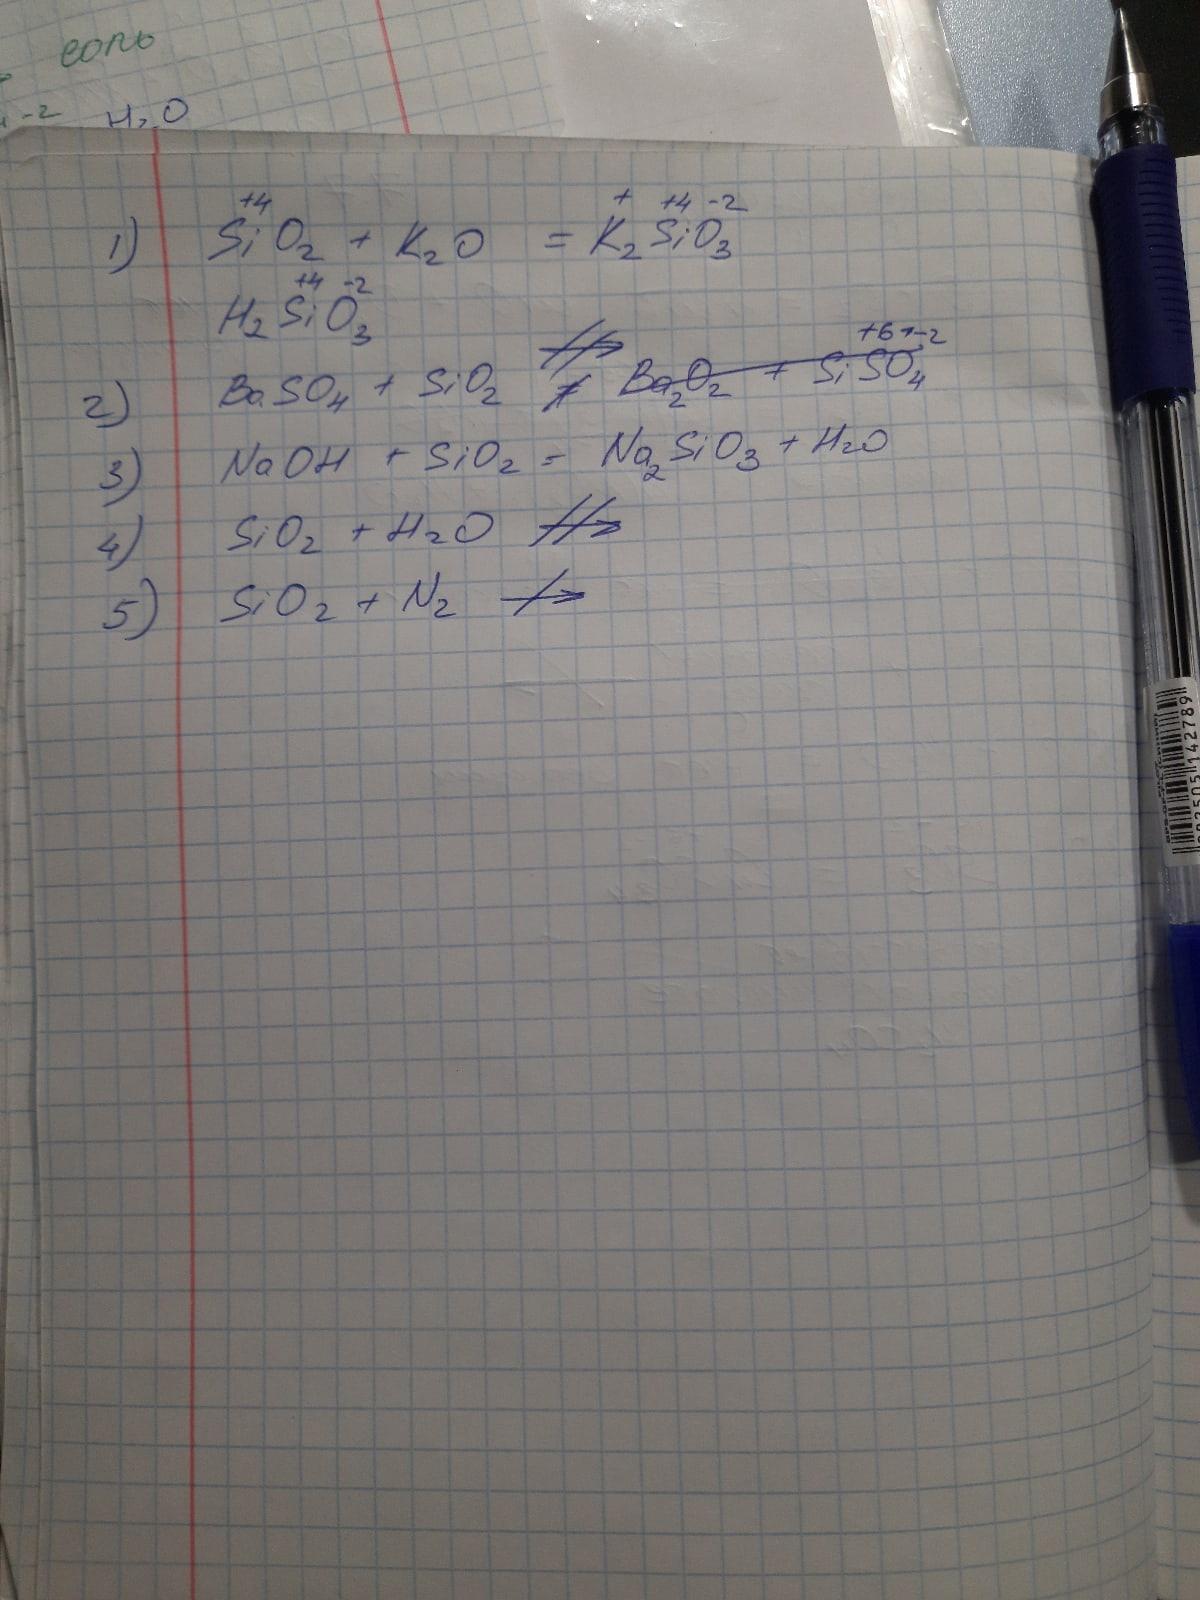 соль
-2 H₂O
+4 + +4 -2
1) SiO₂ + K₂O = K₂SiO₃
+4 -2
H₂SiO₃
+6 -2
2) BaSO₄ + SiO₂ ≠ Ba₂O₂ + SiSO₄
3) NaOH + SiO₂ = Na₂SiO₃ + H₂O
4) SiO₂ + H₂O ↛
5) SiO₂ + N₂ ↛
142789